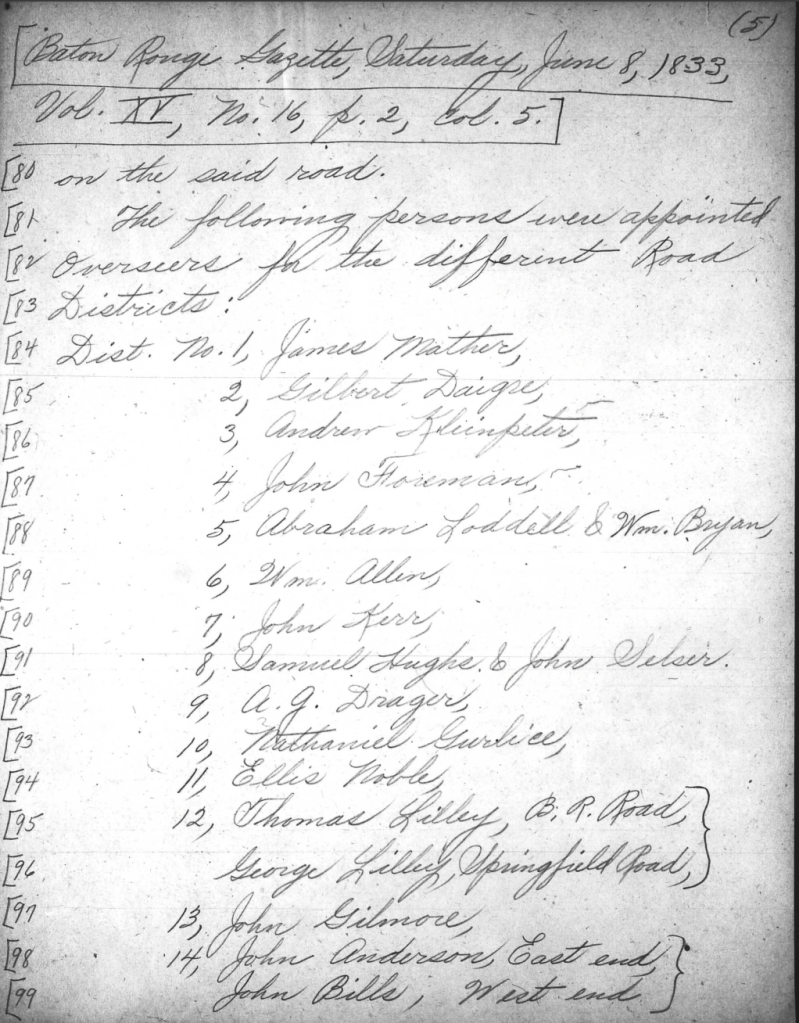 (5)
[Baton Rouge Gazette, Saturday, June 8, 1833,
Vol. XV, No. 16, p. 2, col. 5.]
[80 on the said road.
[81 The following persons were appointed
[82 Overseers for the different Road
[83 Districts:
[84 Dist. No. 1, James Mather,
[85 2, Gilbert Daigre,
[86 3, Andrew Kleinpeter,
[87 4, John Foreman,
[88 5, Abraham Loddell & Wm. Bryan,
[89 6, Wm. Allen,
[90 7, John Kerr,
[91 8, Samuel Hughs. & John Selser.
[92 9, A. G. Drager,
[93 10, Nathaniel Gurlice,
[94 11, Ellis Noble,
[95 12, Thomas Lilley, B. R. Road,
[96 George Lilley, Springfield Road, }
[97 13, John Gilmore,
[98 14, John Anderson, East end,
[99 John Bills, West end }